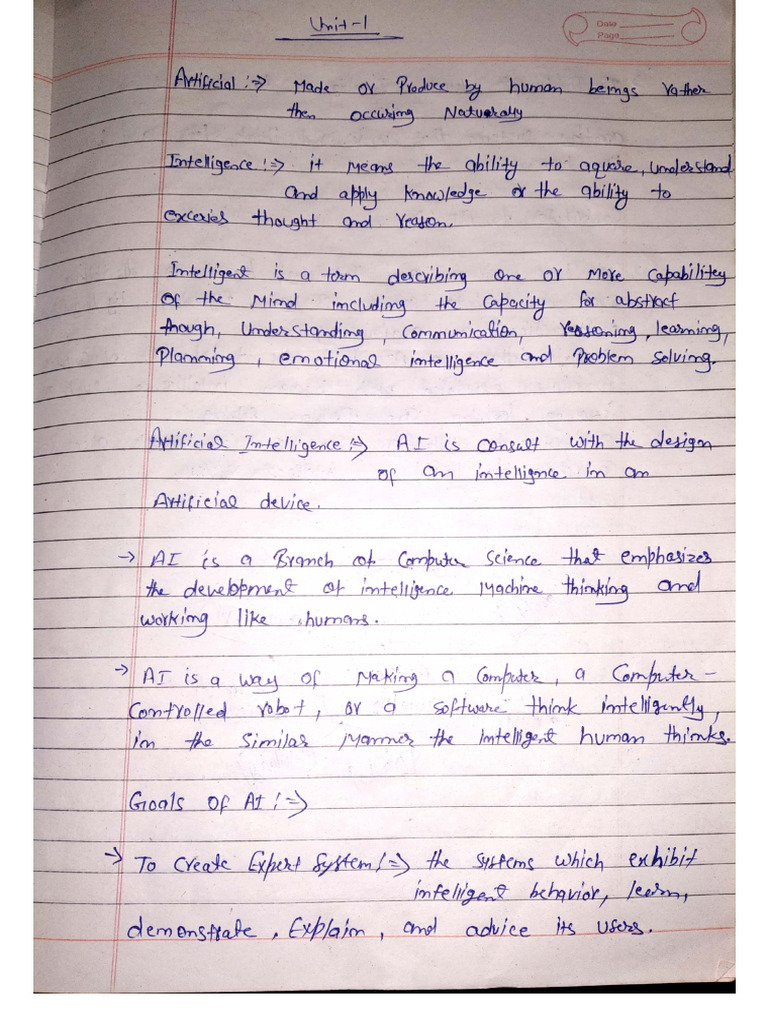 Unit-1
Date
Page
Artificial :→ Made or Produce by human beings rather
then occuring Naturally
Intelligence :→ it means the ability to aquare, understand
and apply knowledge or the ability to
exceries thought and reason.
Intelligent is a term describing one or more capabilitey
of the Mind including the capacity for abstract
though, Understanding, Communication, reasoning, learning,
Planning, emotional intelligence and Problem solving.
Artificial Intelligence :→ AI is consult with the design
of an intelligence in an
Artificial device.
→ AI is a Branch of Computer science that emphasizes
the development of intelligence Machine thinking and
working like humans.
→ AI is a way of Making a Computer, a Computer-
Controlled robot, or a software think intelligently,
in the similar manner the intelligent human thinks.
Goals of AI :→
→ To Create Expert System :→ the systems which exhibit
intelligent behavior, learn,
demonstrate, Explain, and advice its users.